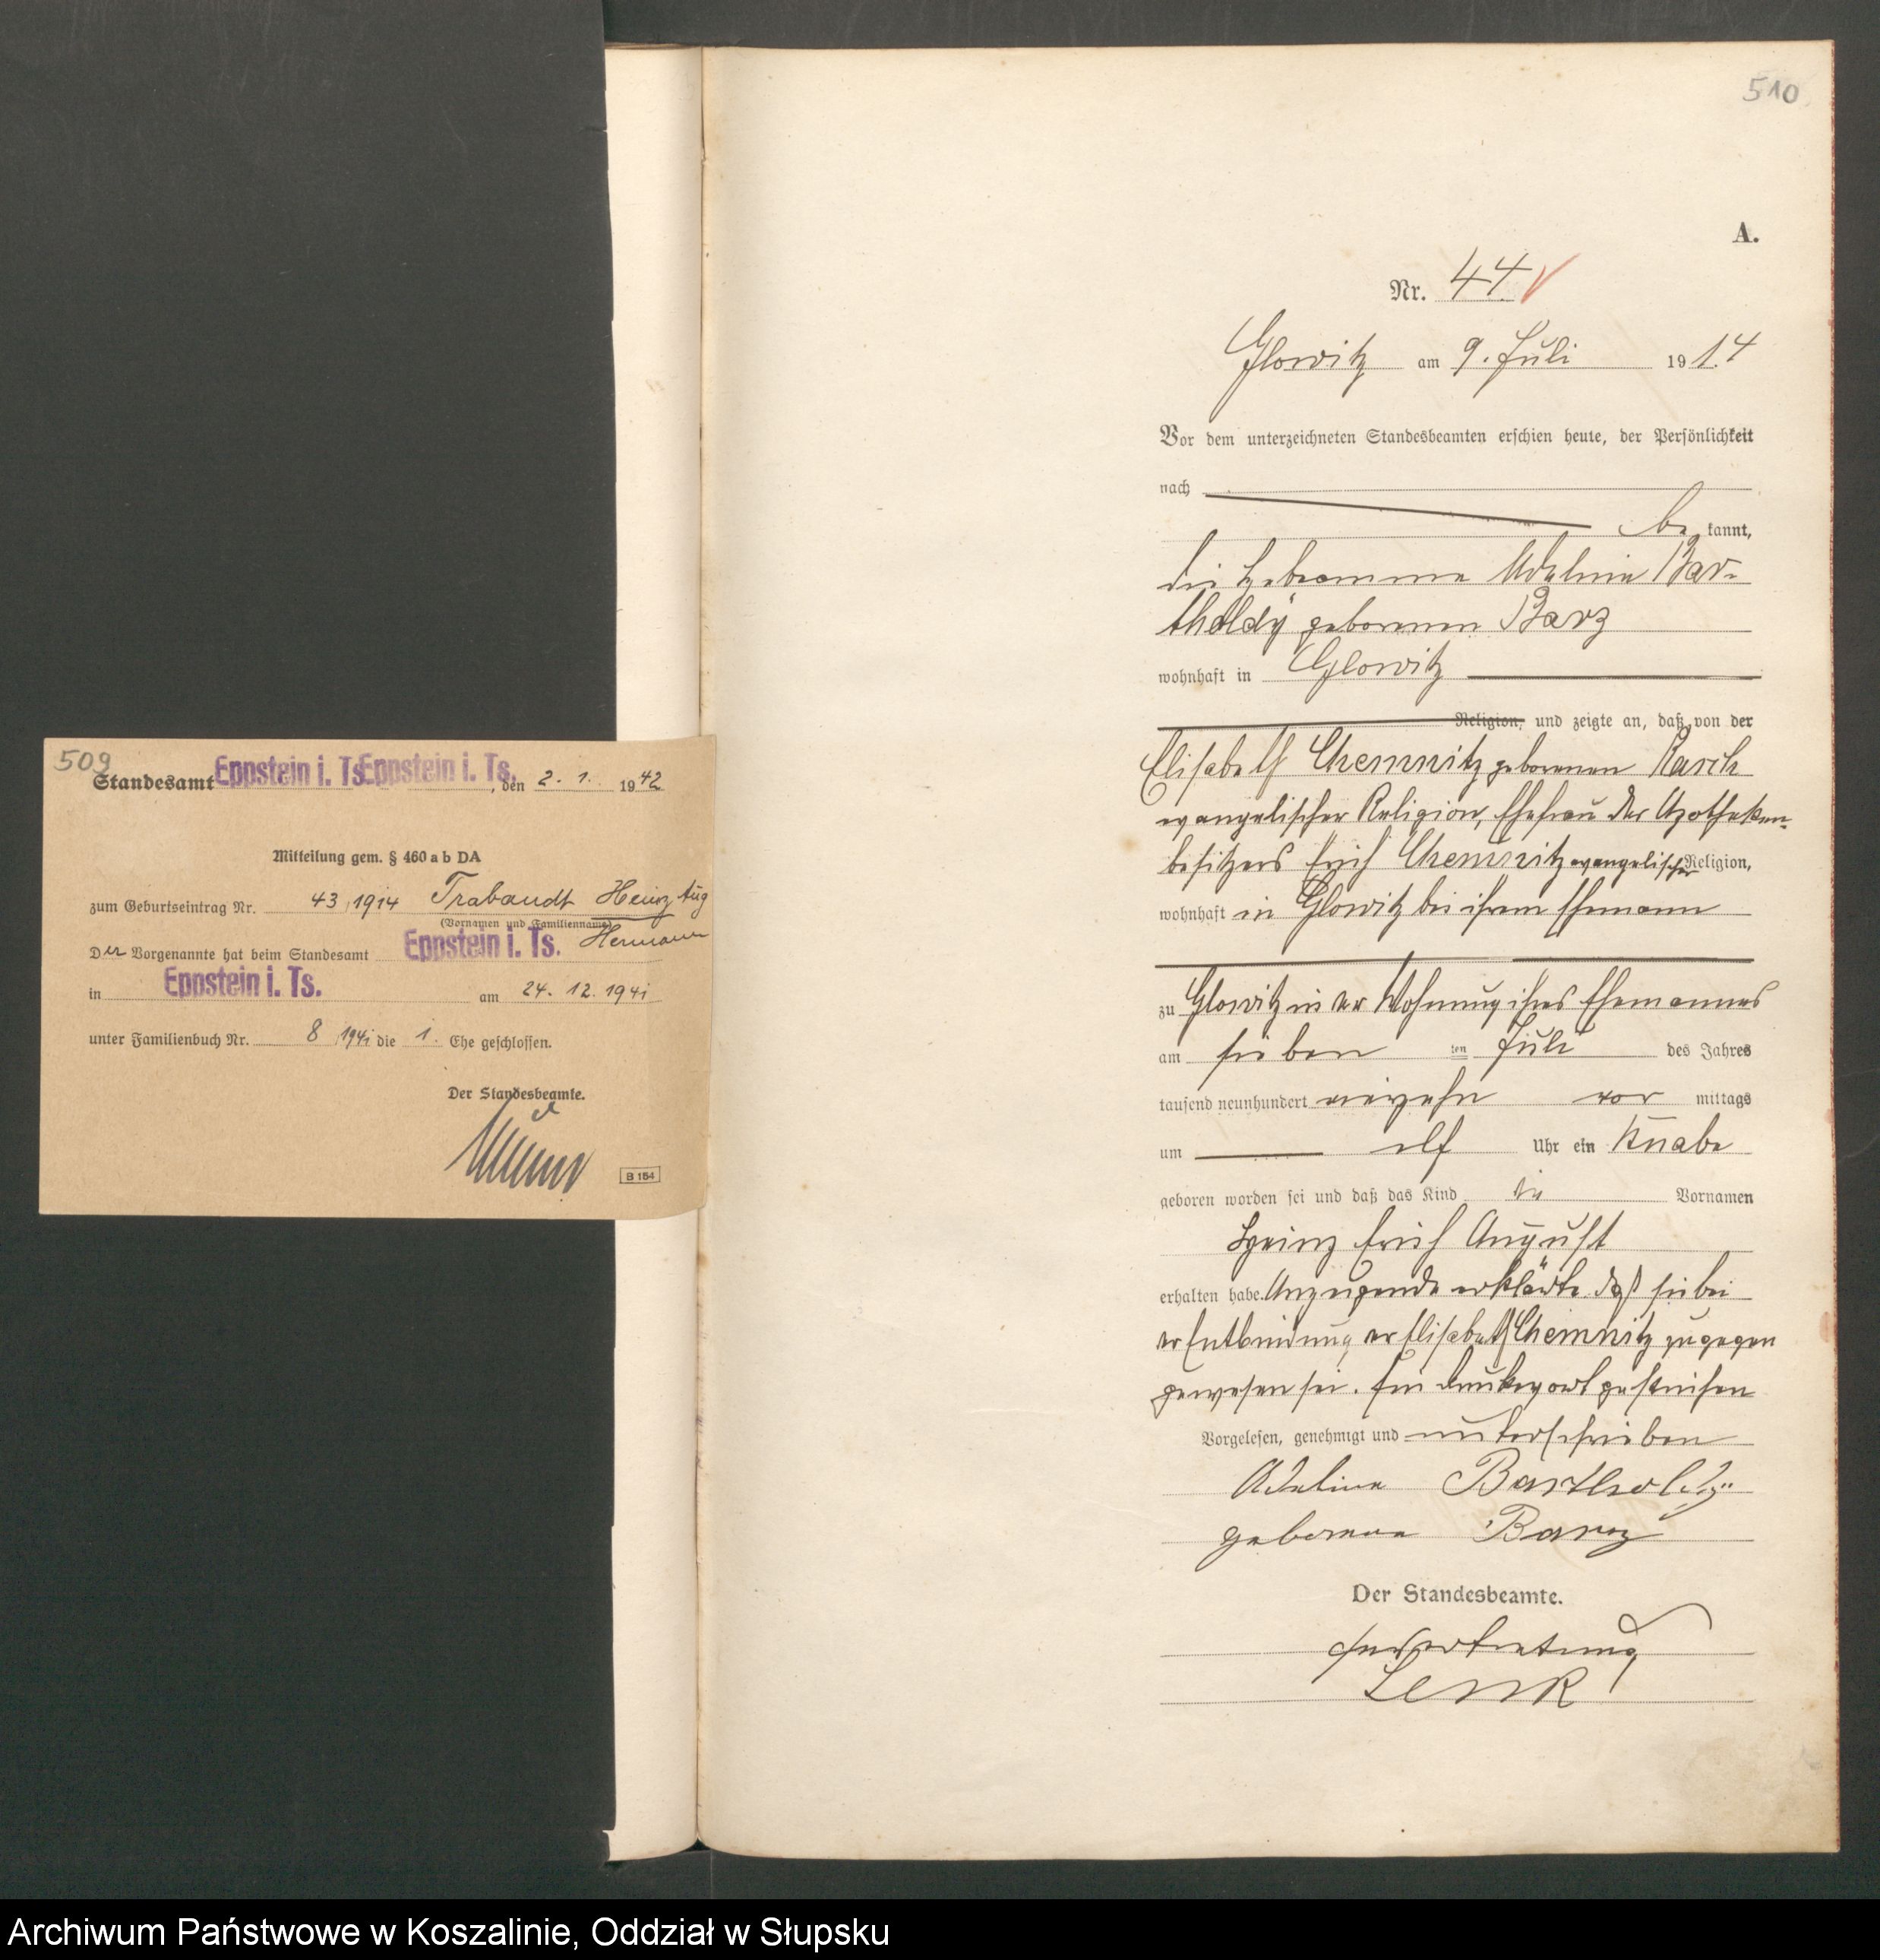 509
Standesamt Eppstein i. Ts. Eppstein i. Ts., den 2. 1. 1942
Mitteilung gem. § 460 a b DA
zum Geburtseintrag Nr. 43, 1914 Trabandt Heinz Aug
(Vornamen und Familienname)
Hermann
Der Vorgenannte hat beim Standesamt Eppstein i. Ts.
in Eppstein i. Ts. am 24. 12. 1941
unter Familienbuch Nr. 8, 1941 die 1. Ehe geschlossen.
Der Standesbeamte.
B 154
510
A.
Nr. 44
Glowitz am 9. Juli 1914
Vor dem unterzeichneten Standesbeamten erschien heute, der Persönlichkeit
nach
be kannt,
die Hebamme Adeline Bar-
tholdy geborenen Barz
wohnhaft in Glowitz
Religion, und zeigte an, daß von der
Elisabeth Chemnitz geborenen Rasch
evangelischer Religion, Ehefrau des Apotheken-
besitzers Erich Chemnitz evangelischer Religion,
wohnhaft in Glowitz bei ihrem Ehemann
zu Glowitz in der Wohnung ihres Ehemannes
am sieben ten Juli des Jahres
tausend neunhundert vierzehn vor mittags
um elf Uhr ein Knabe
geboren worden sei und daß das Kind die Vornamen
Heinz Erich August
erhalten habe. Anzeigende erklärte, daß sie bei
der Entbindung der Elisabeth Chemnitz zugegen
gewesen sei. Ein Druckwort gestrichen
Vorgelesen, genehmigt und unterschrieben
Adeline Bartholdy
geborene Barz
Der Standesbeamte.
In Vertretung
Lenk
Archiwum Państwowe w Koszalinie, Oddział w Słupsku